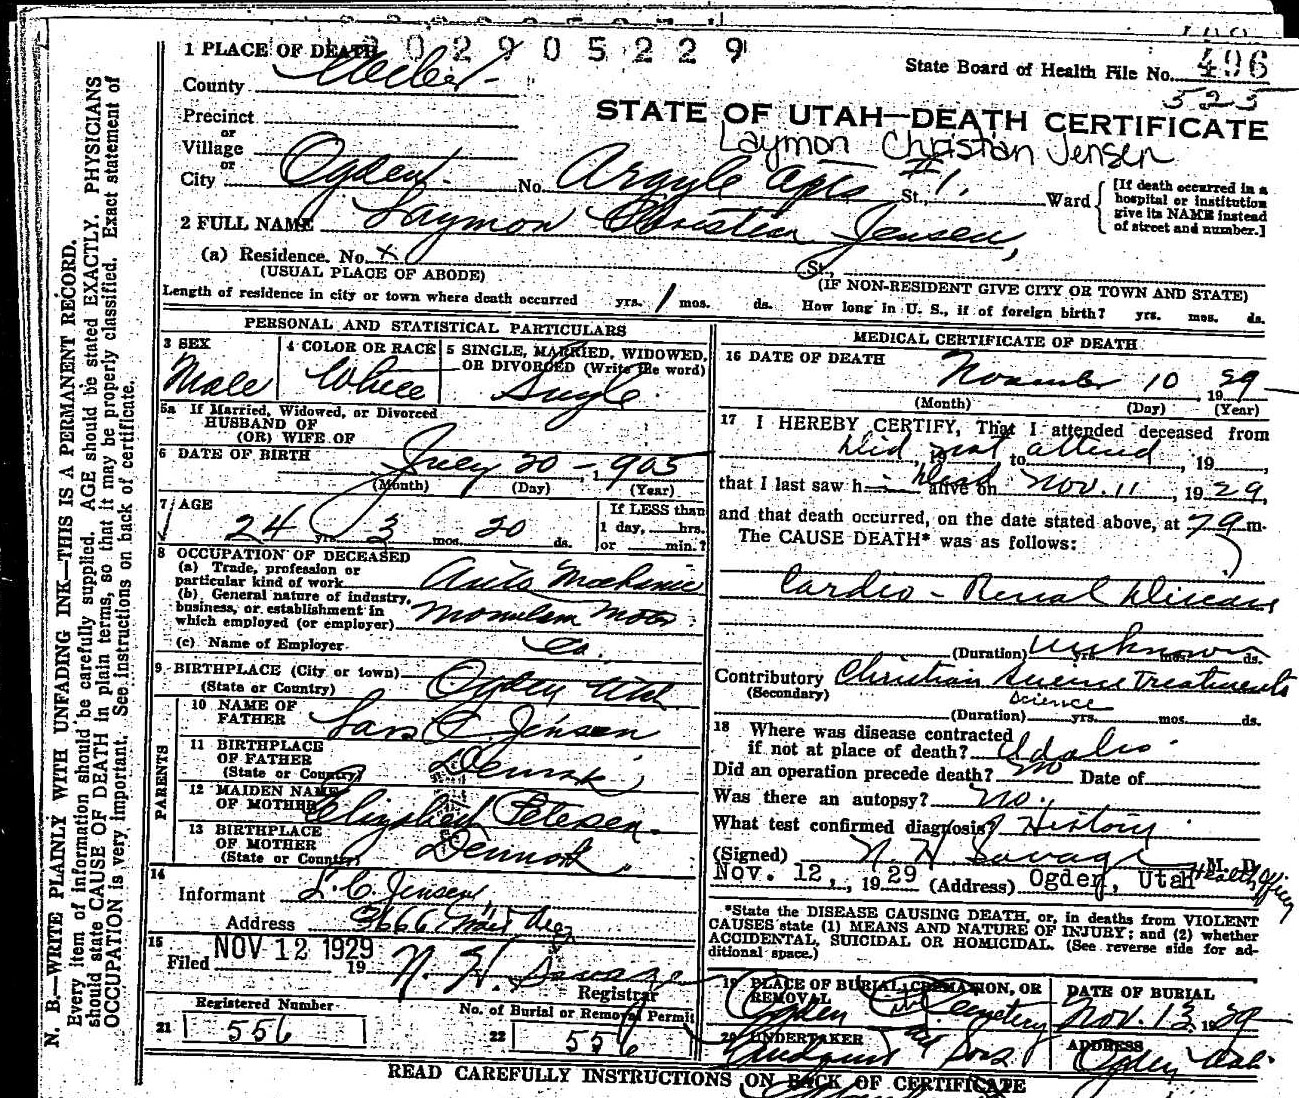 2 9 0 5 2 2 9
1 PLACE OF DEATH
County Weber
State Board of Health File No. 496
525
STATE OF UTAH—DEATH CERTIFICATE
Laymon Christian Jensen
Precinct
or
Village
or
City Ogden No. Argyle Apts # 1. St., Ward
[If death occurred in a
hospital or institution
give its NAME instead
of street and number.]
2 FULL NAME Laymon Christian Jensen,
(a) Residence. No. x St.,
(USUAL PLACE OF ABODE) (IF NON-RESIDENT GIVE CITY OR TOWN AND STATE)
Length of residence in city or town where death occurred yrs. 1 mos. ds. How long in U. S., if of foreign birth? yrs. mos. ds.
PERSONAL AND STATISTICAL PARTICULARS
3 SEX
Male
4 COLOR OR RACE
White
5 SINGLE, MARRIED, WIDOWED,
OR DIVORCED (Write the word)
Single
5a If Married, Widowed, or Divorced
HUSBAND OF
(OR) WIFE OF
6 DATE OF BIRTH July 20 - 1905
(Month) (Day) (Year)
7 AGE
24 yrs. 3 mos. 20 ds.
If LESS than
1 day, hrs.
or min.?
8 OCCUPATION OF DECEASED
(a) Trade, profession or
particular kind of work Auto Mechanic
(b) General nature of industry,
business, or establishment in
which employed (or employer) Motor
(c) Name of Employer Co.
9 BIRTHPLACE (City or town)
(State or Country) Ogden Utah
PARENTS
10 NAME OF
FATHER Lars C. Jensen
11 BIRTHPLACE
OF FATHER
(State or Country) Denmark
12 MAIDEN NAME
OF MOTHER Elizabeth Petersen
13 BIRTHPLACE
OF MOTHER
(State or Country) Denmark
14
Informant L. C. Jensen,
Address 3666
15
Filed NOV 12 1929 19 N. H. Savage
Registrar
Registered Number
21 556
No. of Burial or Removal Permit
22 556
MEDICAL CERTIFICATE OF DEATH
16 DATE OF DEATH November 10, 1929
(Month) (Day) (Year)
17 I HEREBY CERTIFY, That I attended deceased from
Did not attend, 19 to , 19
that I last saw h dead alive on Nov. 11, 1929,
and that death occurred, on the date stated above, at 7 9 m.
The CAUSE DEATH* was as follows:
Cardio - Renal Disease
(Duration) unknown yrs. mos. ds.
Contributory Christian Science Treatments
(Secondary) Science
(Duration) yrs. mos. ds.
18 Where was disease contracted
if not at place of death? Idaho
Did an operation precede death? no Date of
Was there an autopsy? No.
What test confirmed diagnosis? History
(Signed) N. H. Savage M. D.
Health Officer
Nov. 12, , 1929 (Address) Ogden, Utah
*State the DISEASE CAUSING DEATH, or, in deaths from VIOLENT
CAUSES state (1) MEANS AND NATURE OF INJURY; and (2) whether
ACCIDENTAL, SUICIDAL OR HOMICIDAL. (See reverse side for ad-
ditional space.)
19 PLACE OF BURIAL, CREMATION, OR
REMOVAL
Ogden City Cemetery
DATE OF BURIAL
Nov. 13, 1929
20 UNDERTAKER
& Sons
ADDRESS
Ogden Utah
READ CAREFULLY INSTRUCTIONS ON BACK OF CERTIFICATE
N. B.—WRITE PLAINLY WITH UNFADING INK—THIS IS A PERMANENT RECORD.
Every item of information should be carefully supplied. AGE should be stated EXACTLY. PHYSICIANS
should state CAUSE OF DEATH in plain terms, so that it may be properly classified. Exact statement of
OCCUPATION is very important. See instructions on back of certificate.